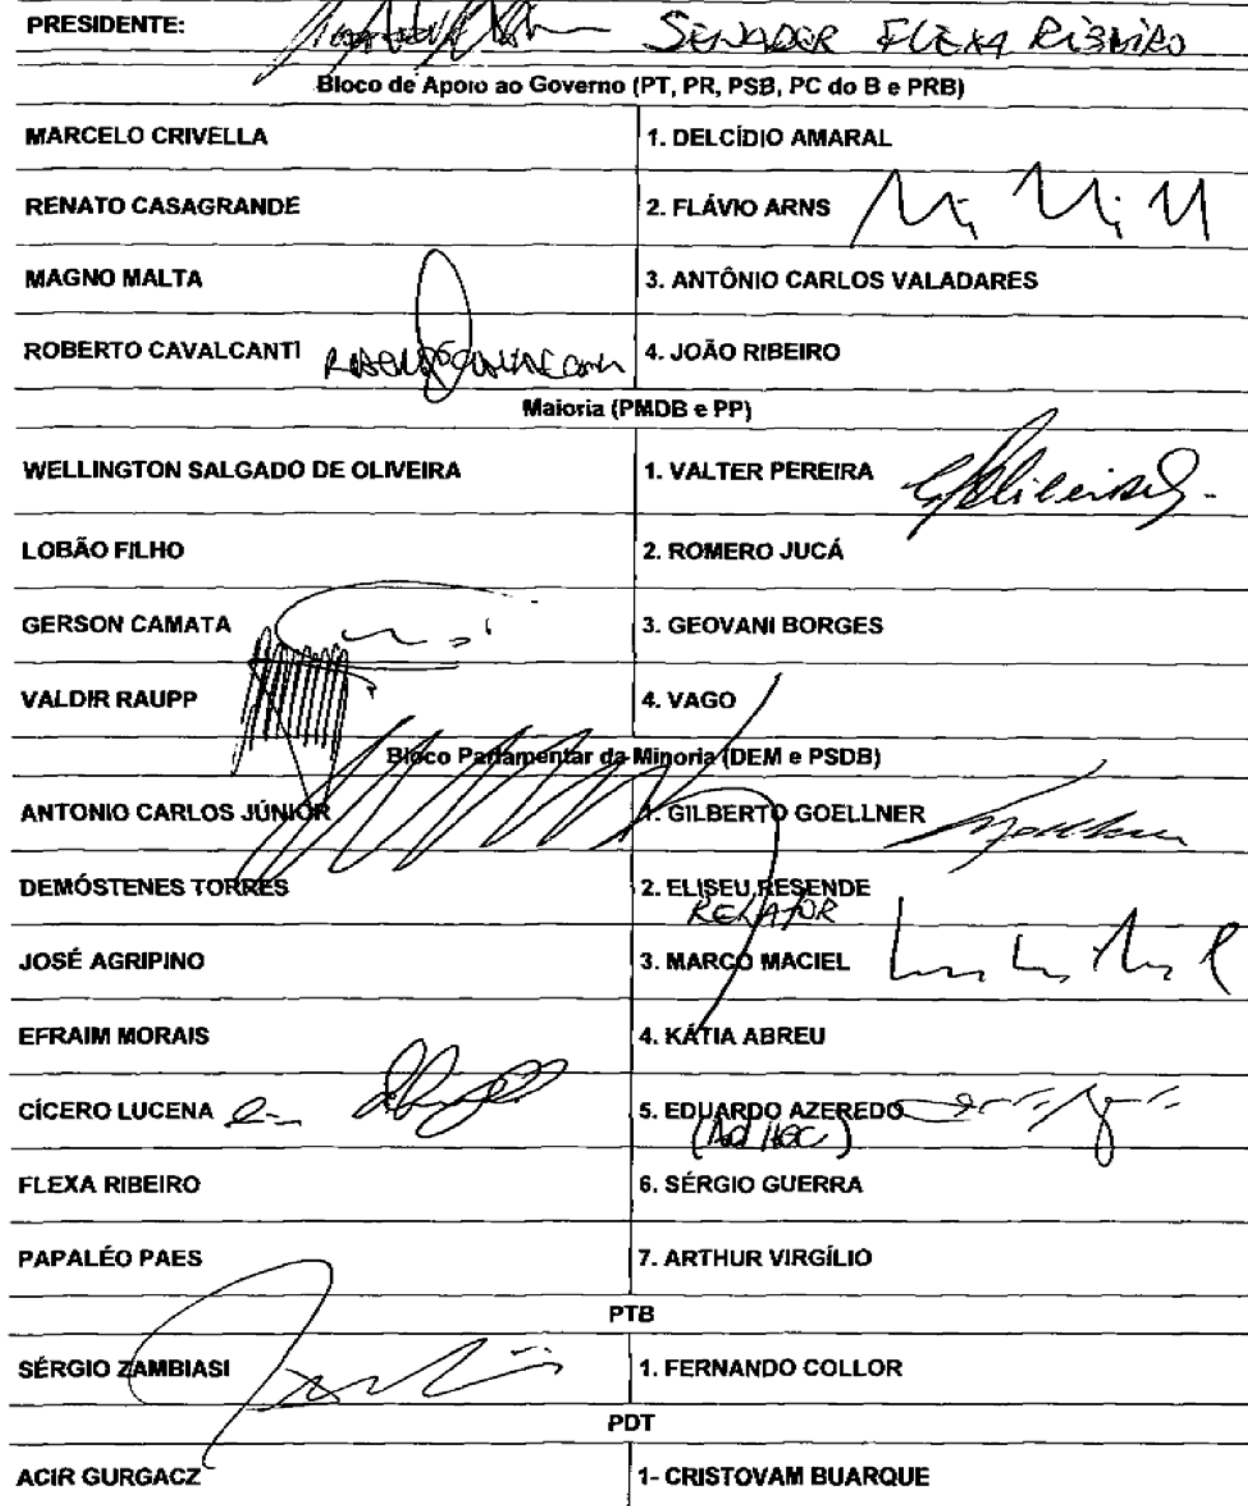 PRESIDENTE: SENADOR FLEXA RIBEIRO
Bloco de Apoio ao Governo (PT, PR, PSB, PC do B e PRB)
MARCELO CRIVELLA 1. DELCÍDIO AMARAL
RENATO CASAGRANDE 2. FLÁVIO ARNS
MAGNO MALTA 3. ANTÔNIO CARLOS VALADARES
ROBERTO CAVALCANTI 4. JOÃO RIBEIRO
Maioria (PMDB e PP)
WELLINGTON SALGADO DE OLIVEIRA 1. VALTER PEREIRA
LOBÃO FILHO 2. ROMERO JUCÁ
GERSON CAMATA 3. GEOVANI BORGES
VALDIR RAUPP 4. VAGO
Bloco Parlamentar da Minoria (DEM e PSDB)
ANTONIO CARLOS JÚNIOR 1. GILBERTO GOELLNER
DEMÓSTENES TORRES 2. ELISEU RESENDE
RELATOR
JOSÉ AGRIPINO 3. MARCO MACIEL
EFRAIM MORAIS 4. KÁTIA ABREU
CÍCERO LUCENA 5. EDUARDO AZEREDO
(Ad HOC)
FLEXA RIBEIRO 6. SÉRGIO GUERRA
PAPALÉO PAES 7. ARTHUR VIRGÍLIO
PTB
SÉRGIO ZAMBIASI 1. FERNANDO COLLOR
PDT
ACIR GURGACZ 1- CRISTOVAM BUARQUE